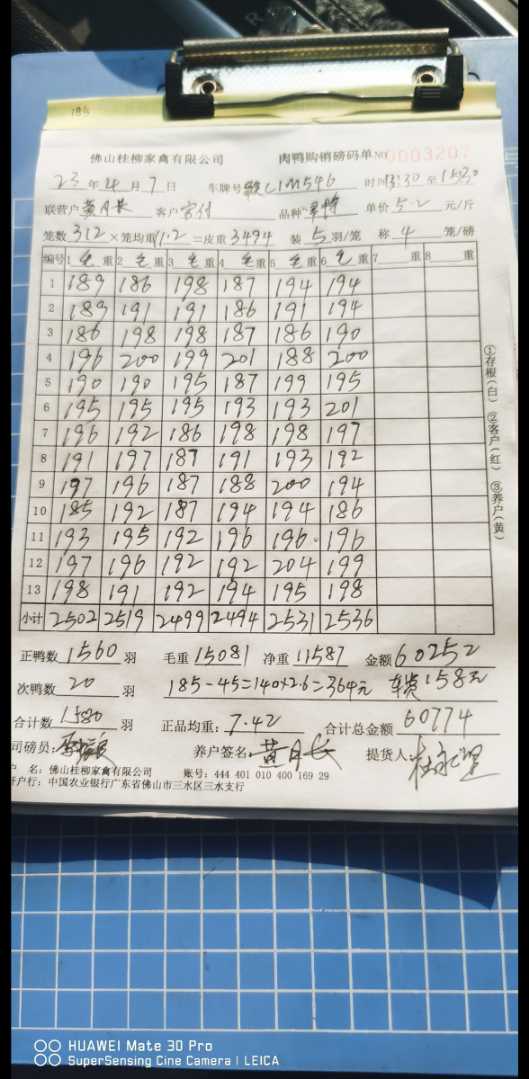 185
佛山桂柳家禽有限公司 肉鸭购销磅码单 NO 0003207
23年4月7日 车牌号 C1M546 时间13:30至15:30
联营户 黄月长 客户 客付 品种 单价5.2元/斤
笼数312×笼均重11.2=皮重3494 装5羽/笼 称4笼/磅
编号 1毛重 2毛重 3毛重 4毛重 5毛重 6毛重 7 重 8 重
1 189 186 198 187 194 194
2 189 191 191 186 191 194
3 186 198 198 187 186 190
4 196 200 199 201 188 200
5 190 190 195 187 199 195
6 195 195 195 193 193 201
7 196 192 186 198 198 197
8 191 197 187 191 193 192
9 197 196 187 188 200 194
10 185 192 187 194 194 186
11 193 195 192 196 196 196
12 197 196 192 192 204 199
13 198 191 192 194 195 198
小计 2502 2519 2499 2494 2531 2536
①存根(白) ②客户(红) ③养户(黄)
正鸭数1560羽 毛重15081 净重11587 金额60252
次鸭数20羽 185-45=140×2.6=364元 车费158元
合计数1580羽 正品均重:7.42 合计总金额60774
司磅员: 养户签名:黄月长 提货人:
户 名:佛山桂柳家禽有限公司 账号:444 401 010 400 169 29
开户行:中国农业银行广东省佛山市三水区三水支行
HUAWEI Mate 30 Pro
SuperSensing Cine Camera | LEICA